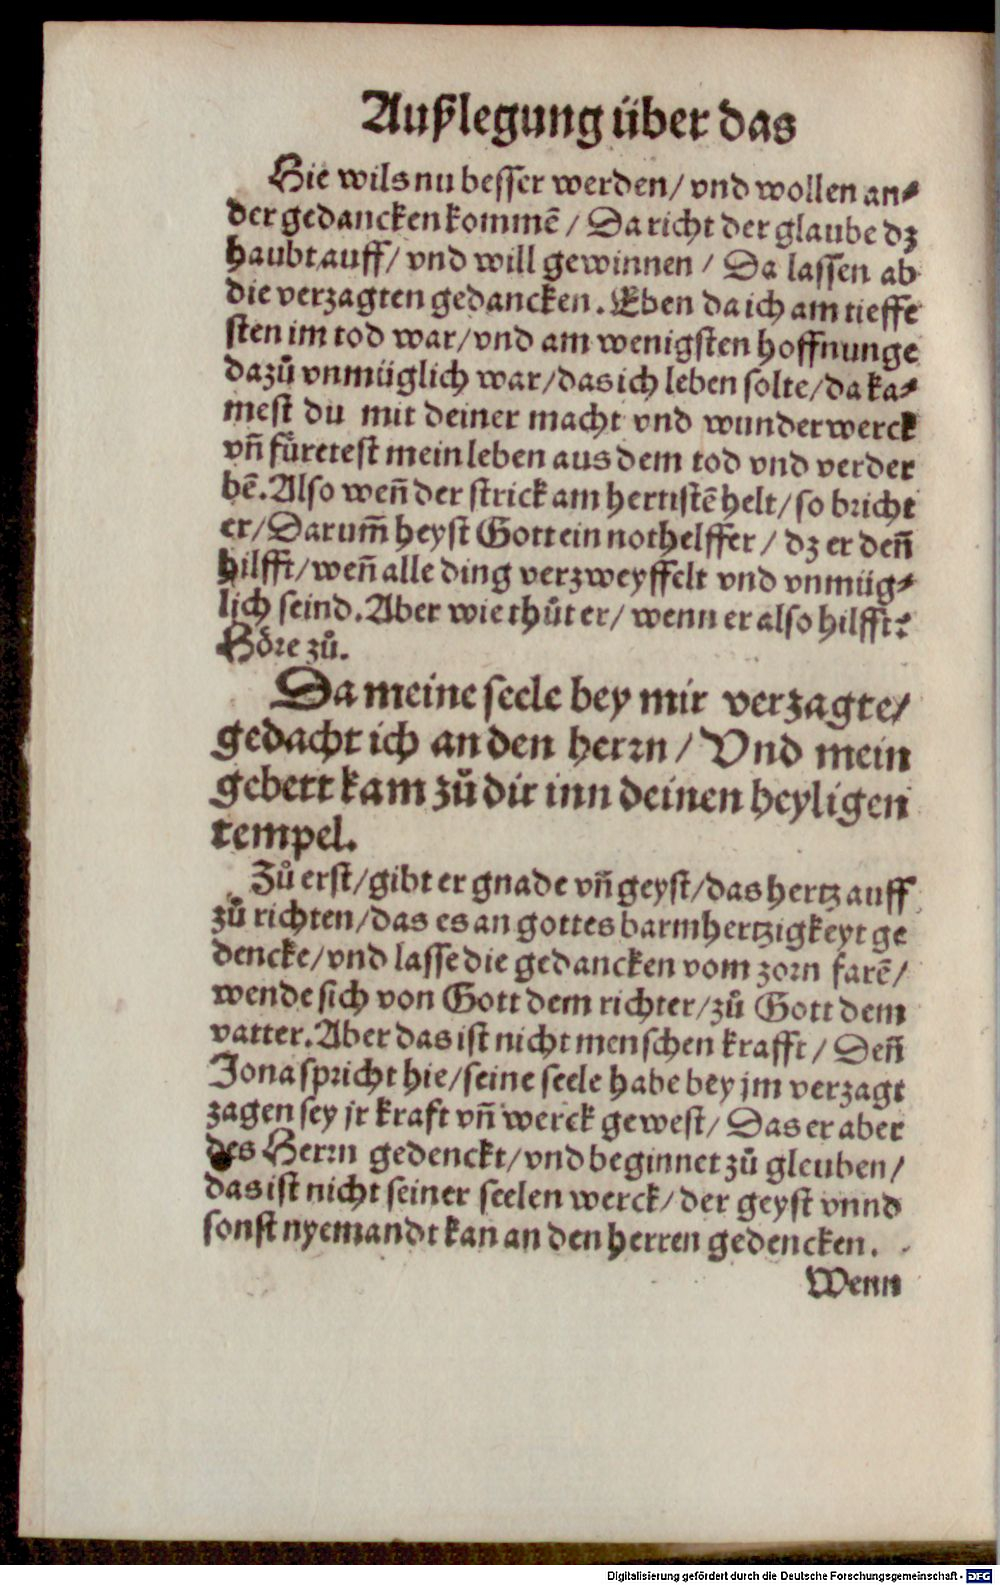 Außlegung über das
Hie wils nu besser werden / vnd wollen an⸗
der gedancken kommẽ / Da richt der glaube dz
haubt auff / vnd will gewinnen / Da lassen ab
die verzagten gedancken. Eben da ich am tieffe
sten im tod war / vnd am wenigsten hoffnunge
dazů vnmüglich war / das ich leben solte / da ka⸗
mest du mit deiner macht vnd wunderwerck
vñ fůretest mein leben aus dem tod vnd verder
bẽ. Also weñ der strick am hertistẽ helt / so bricht
er / Darum̃ heyst Gott ein nothelffer / dz er deñ
hilfft / weñ alle ding verzweyffelt vnd vnmüg⸗
lich seind. Aber wie thůt er / wenn er also hilfft?
Hoͤre zů.
Da meine seele bey mir verzagte /
gedacht ich an den herrn / Vnd mein
gebett kam zů dir inn deinen heyligen
tempel.
Zů erst / gibt er gnade vñ geyst / das hertz auff
zů richten / das es an gottes barmhertzigkeyt ge
dencke / vnd lasse die gedancken vom zorn farẽ /
wende sich von Gott dem richter / zů Gott dem
vatter. Aber das ist nicht menschen krafft / Deñ
Jona spricht hie / seine seele habe bey jm verzagt
zagen sey jr kraft vñ werck gewest / Das er aber
des Herrn gedenckt / vnd beginnet zů gleuben /
das ist nicht seiner seelen werck / der geyst vnnd
sonst nyemandt kan an den herren gedencken.
Wenn
Digitalisierung gefördert durch die Deutsche Forschungsgemeinschaft - DFG